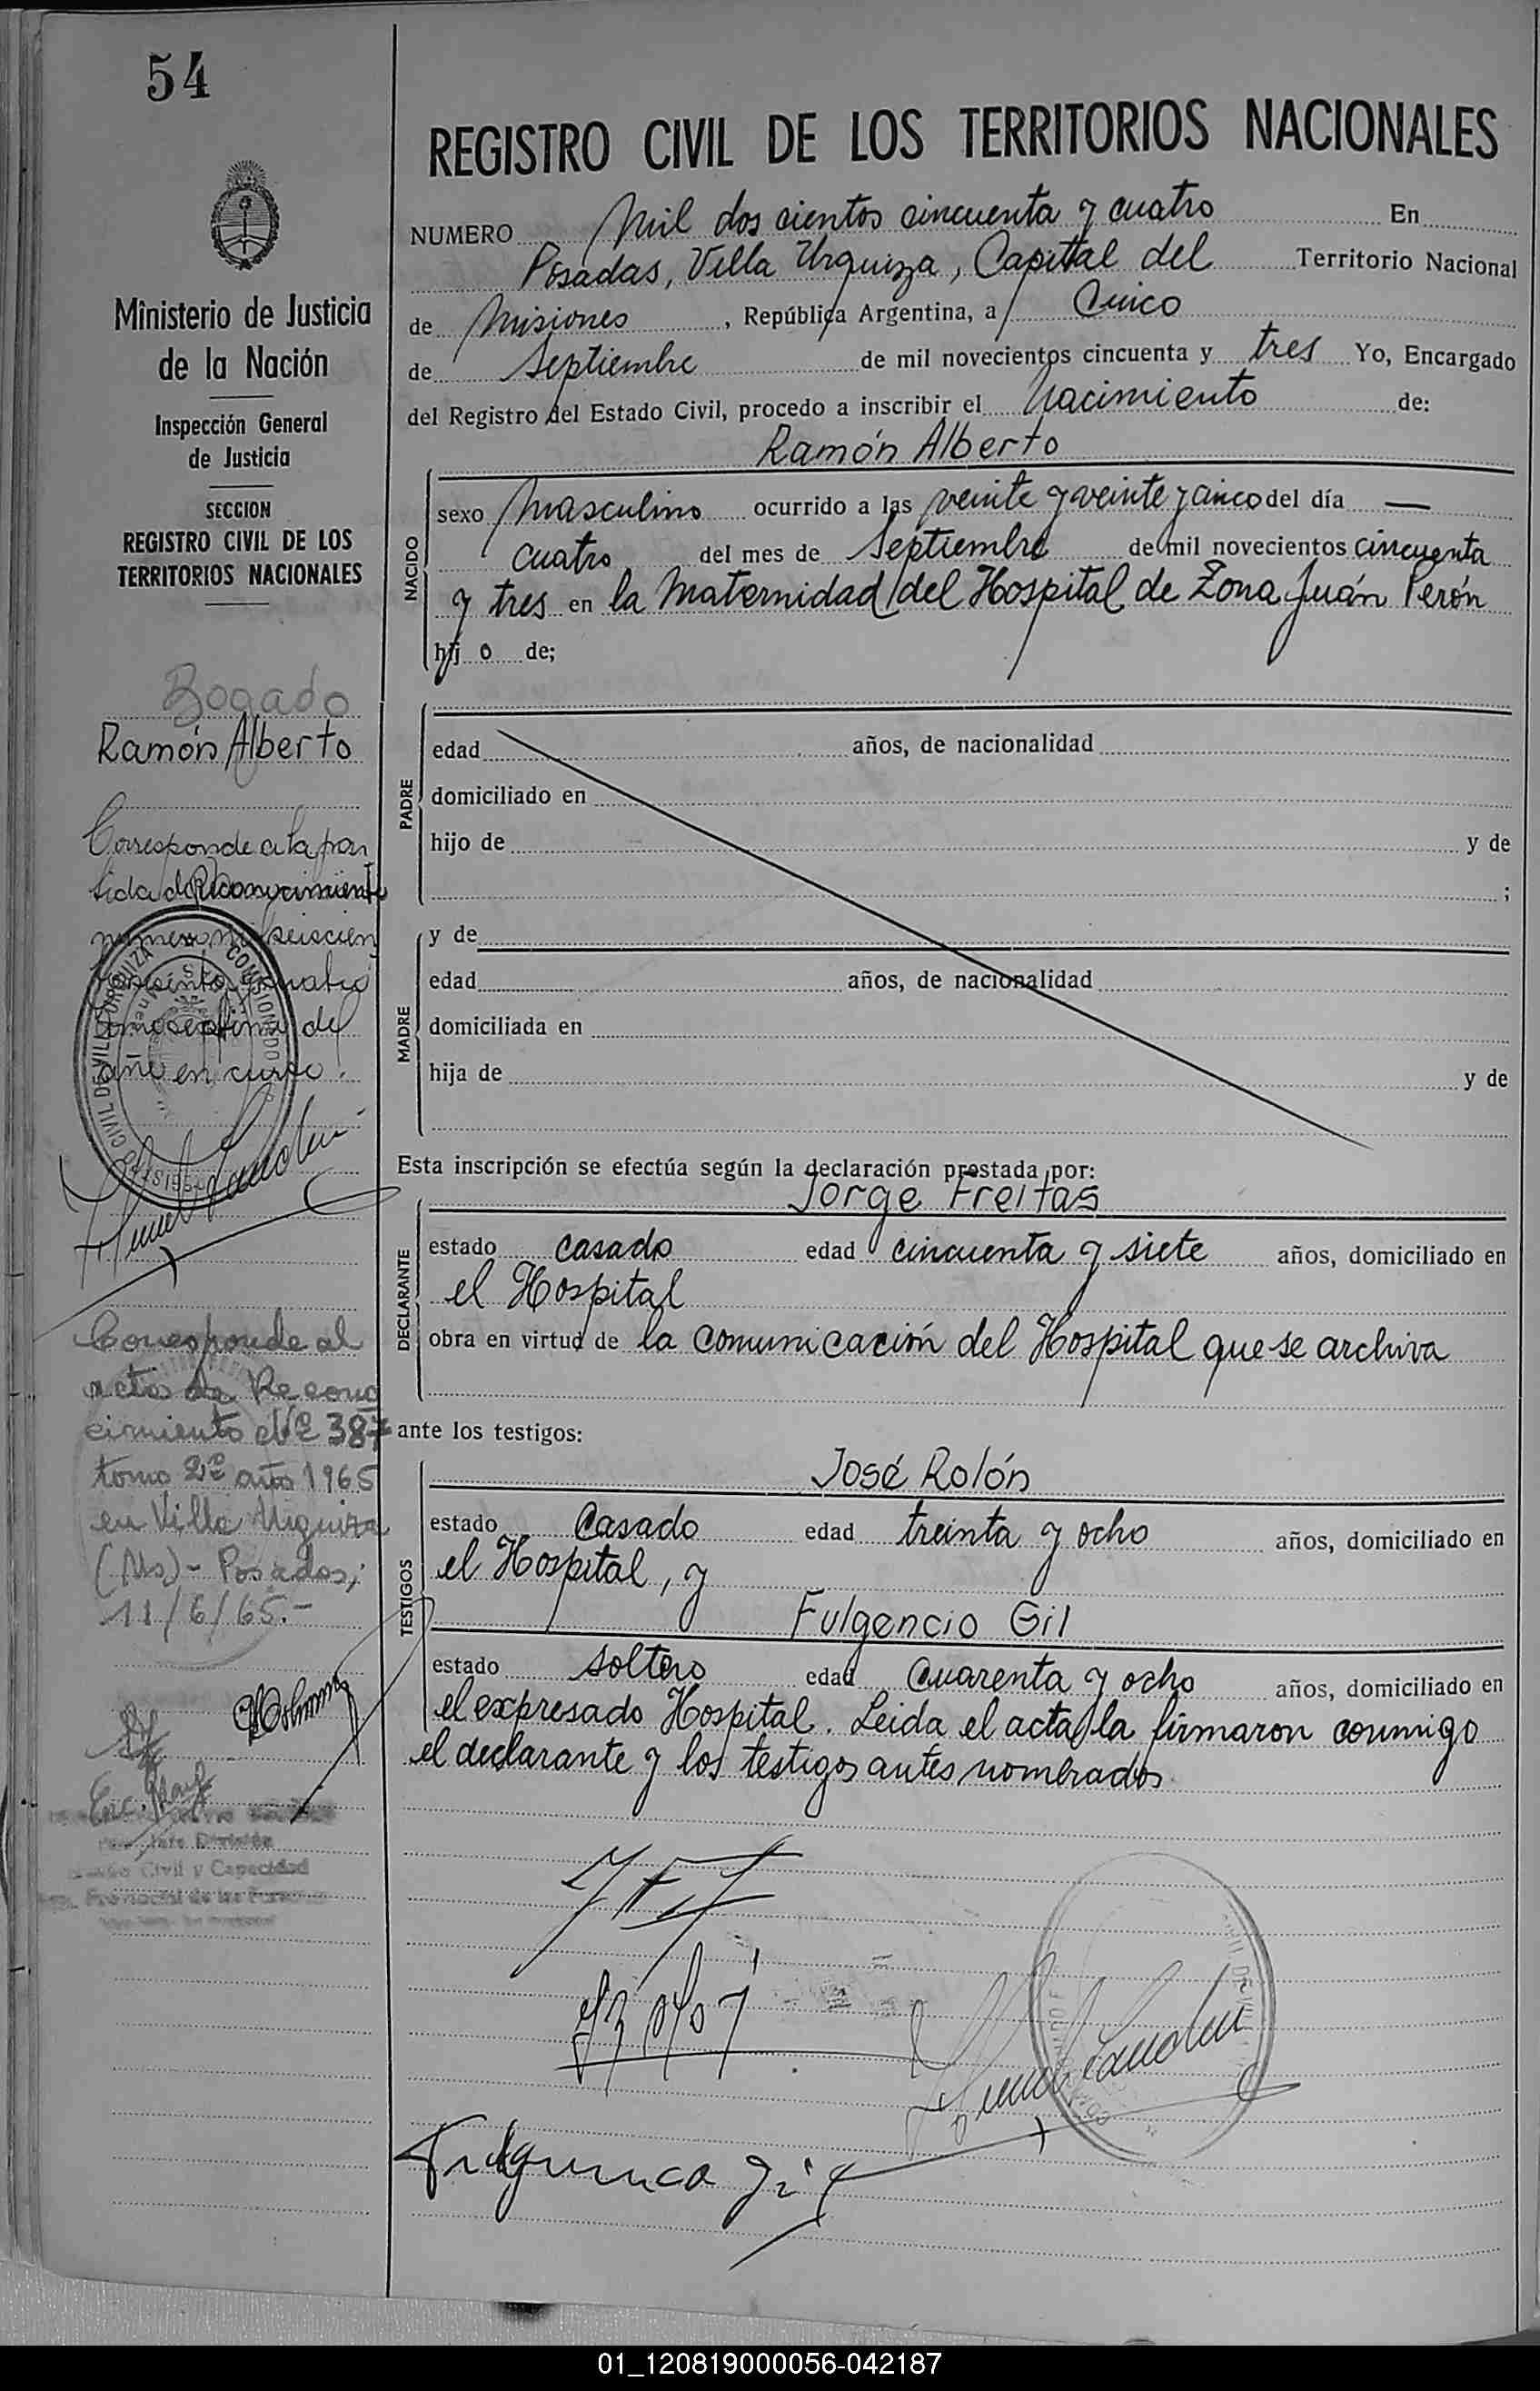 54
Ministerio de Justicia
de la Nación
Inspección General
de Justicia
SECCION
REGISTRO CIVIL DE LOS
TERRITORIOS NACIONALES
Bogado
Ramón Alberto
Corresponde a la par
tida de Reconocimiento
numero mil seiscien
cuatro
del
año en curso.
Corresponde al
acta de Recono
cimiento Nº 387
tomo 2º año 1965
en Villa Urquiza
(Ms) - Posadas,
11/6/65.-
Jefe División
Civil y Capacidad
Provincial de las Personas
REGISTRO CIVIL DE LOS TERRITORIOS NACIONALES
NUMERO Mil dos cientos cincuenta y cuatro En
Posadas, Villa Urquiza, Capital del Territorio Nacional
de Misiones, República Argentina, a Cinco
de Septiembre de mil novecientos cincuenta y tres Yo, Encargado
del Registro del Estado Civil, procedo a inscribir el Nacimiento de:
Ramón Alberto
NACIDO
sexo Masculino ocurrido a las veinte y veinte y cinco del día —
cuatro del mes de Septiembre de mil novecientos cincuenta
y tres en la Maternidad del Hospital de Zona Juán Perón
hij o de;
PADRE
edad años, de nacionalidad
domiciliado en
hijo de y de
;
MADRE
y de
edad años, de nacionalidad
domiciliada en
hija de y de
Esta inscripción se efectúa según la declaración prestada por:
Jorge Freitas
DECLARANTE
estado casado edad cincuenta y siete años, domiciliado en
el Hospital
obra en virtud de la comunicación del Hospital que se archiva
ante los testigos:
José Rolón
TESTIGOS
estado Casado edad treinta y ocho años, domiciliado en
el Hospital, y
Fulgencio Gil
estado soltero edad cuarenta y ocho años, domiciliado en
el expresado Hospital. Leida el acta la firmaron conmigo
el declarante y los testigos antes nombrados
01_120819000056-042187